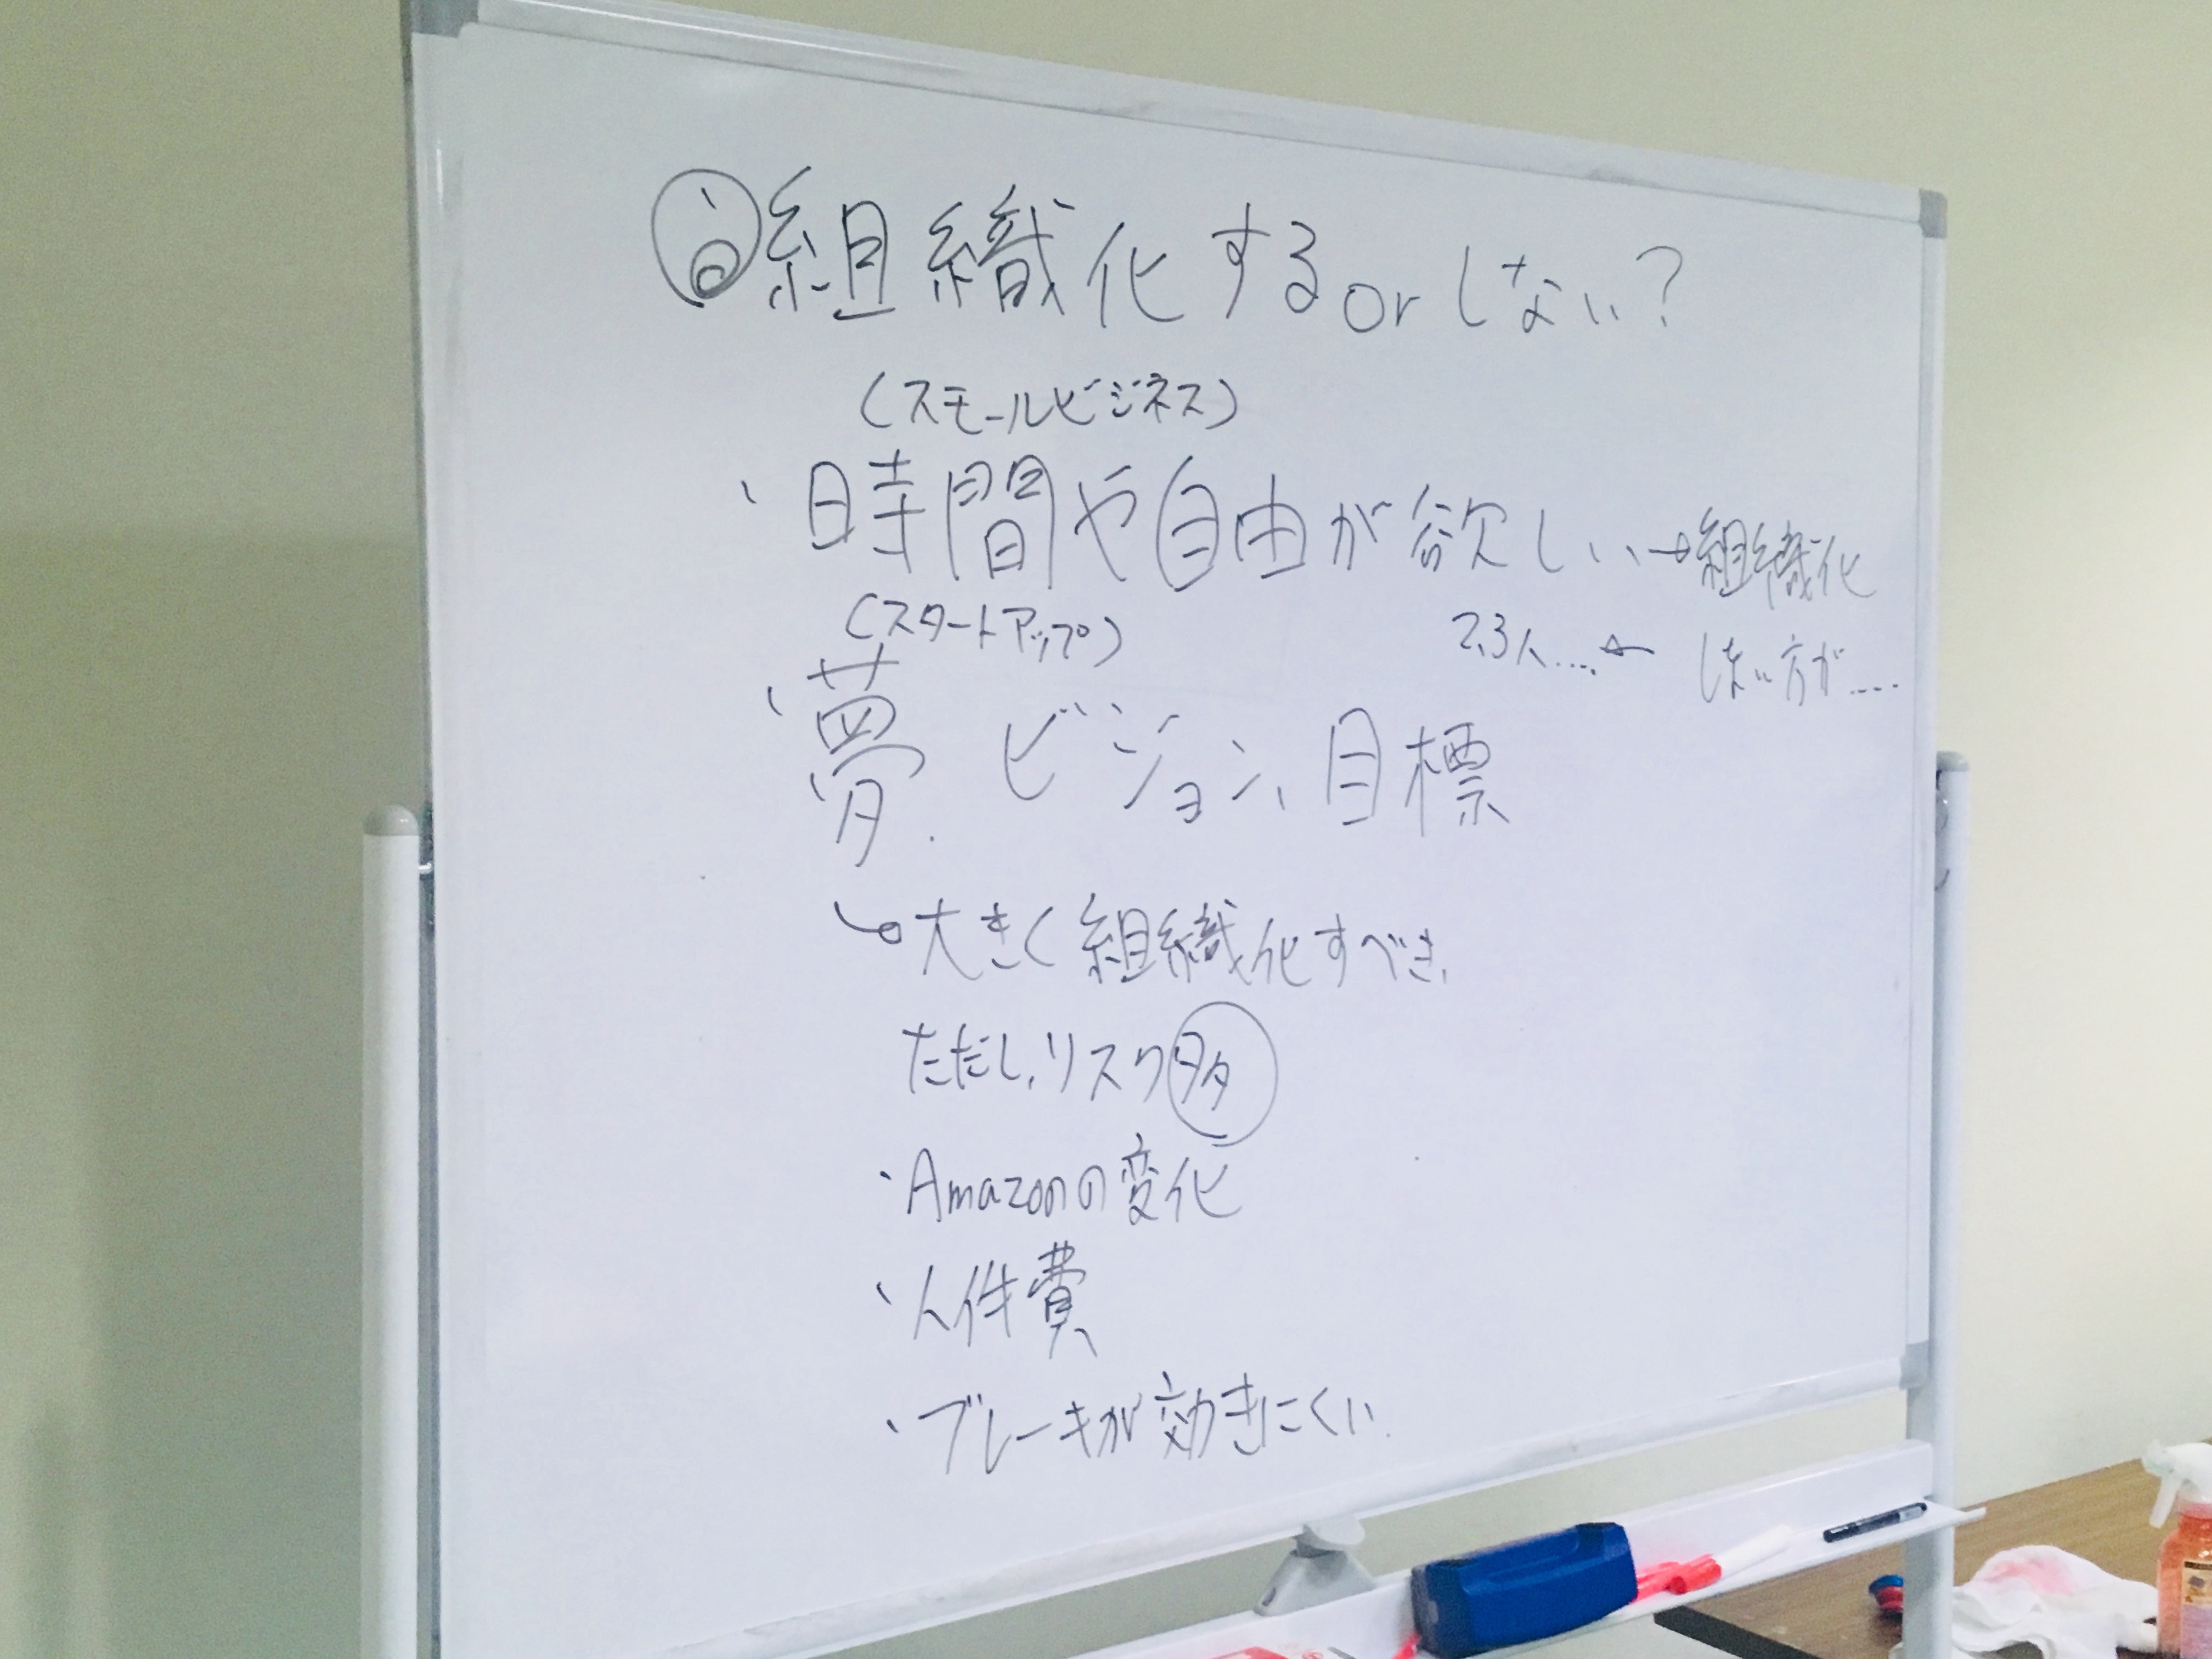 組織化するorしない?
(スモールビジネス)
・時間や自由が欲しい→組織化
しない方が....
2,3人....←
(スタートアップ)
・夢.ビジョン、目標
→大きく組織化すべき、
ただし、リスク多
・Amazonの変化
・人件費
・ブレーキが効きにくい.